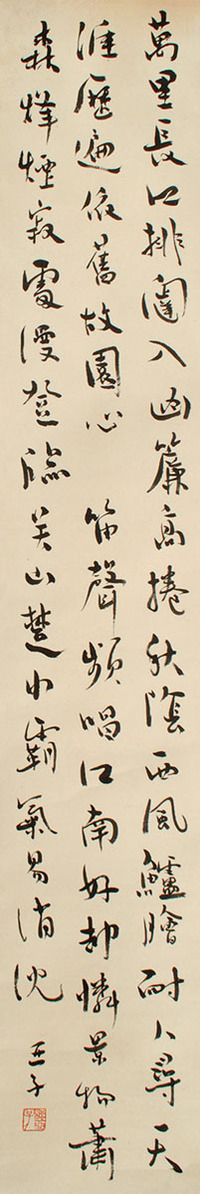 萬里長江排闥入画簾高捲秋陰西風鱸膾耐人尋天
涯歷遍依舊故園心 笛聲頻唱江南好却憐景物蕭
森烽煙寂處漫登臨吴山楚水霸氣易消沈 亞子